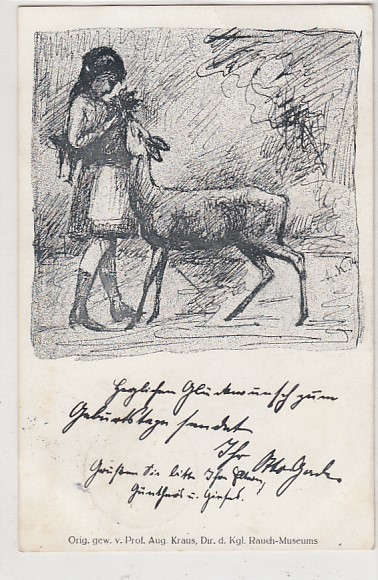 A.K. 14
Herzlichen Glückwunsch zum
Geburtstage sendet
Ihr Otto
Grüßen Sie bitte Ihre Eltern,
Günther u. Gisela.
Orig. gew. v. Prof. Aug. Kraus, Dir. d. Kgl. Rauch-Museums